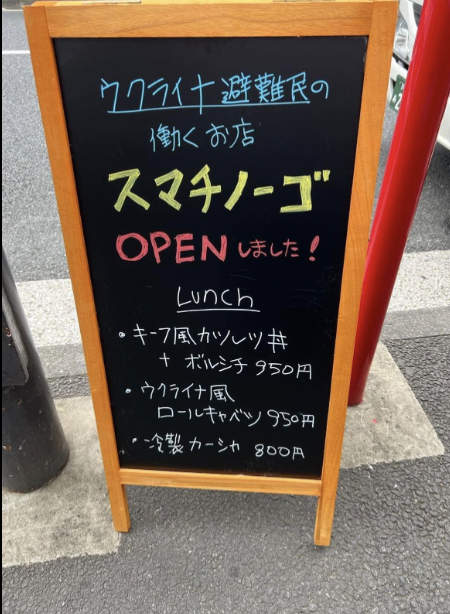 ウクライナ避難民の
働くお店
スマチノーゴ
OPENしました!
Lunch
・キーフ風カツレツ丼
+ ボルシチ 950円
・ウクライナ風
ロールキャベツ 950円
・冷製カーシャ 800円